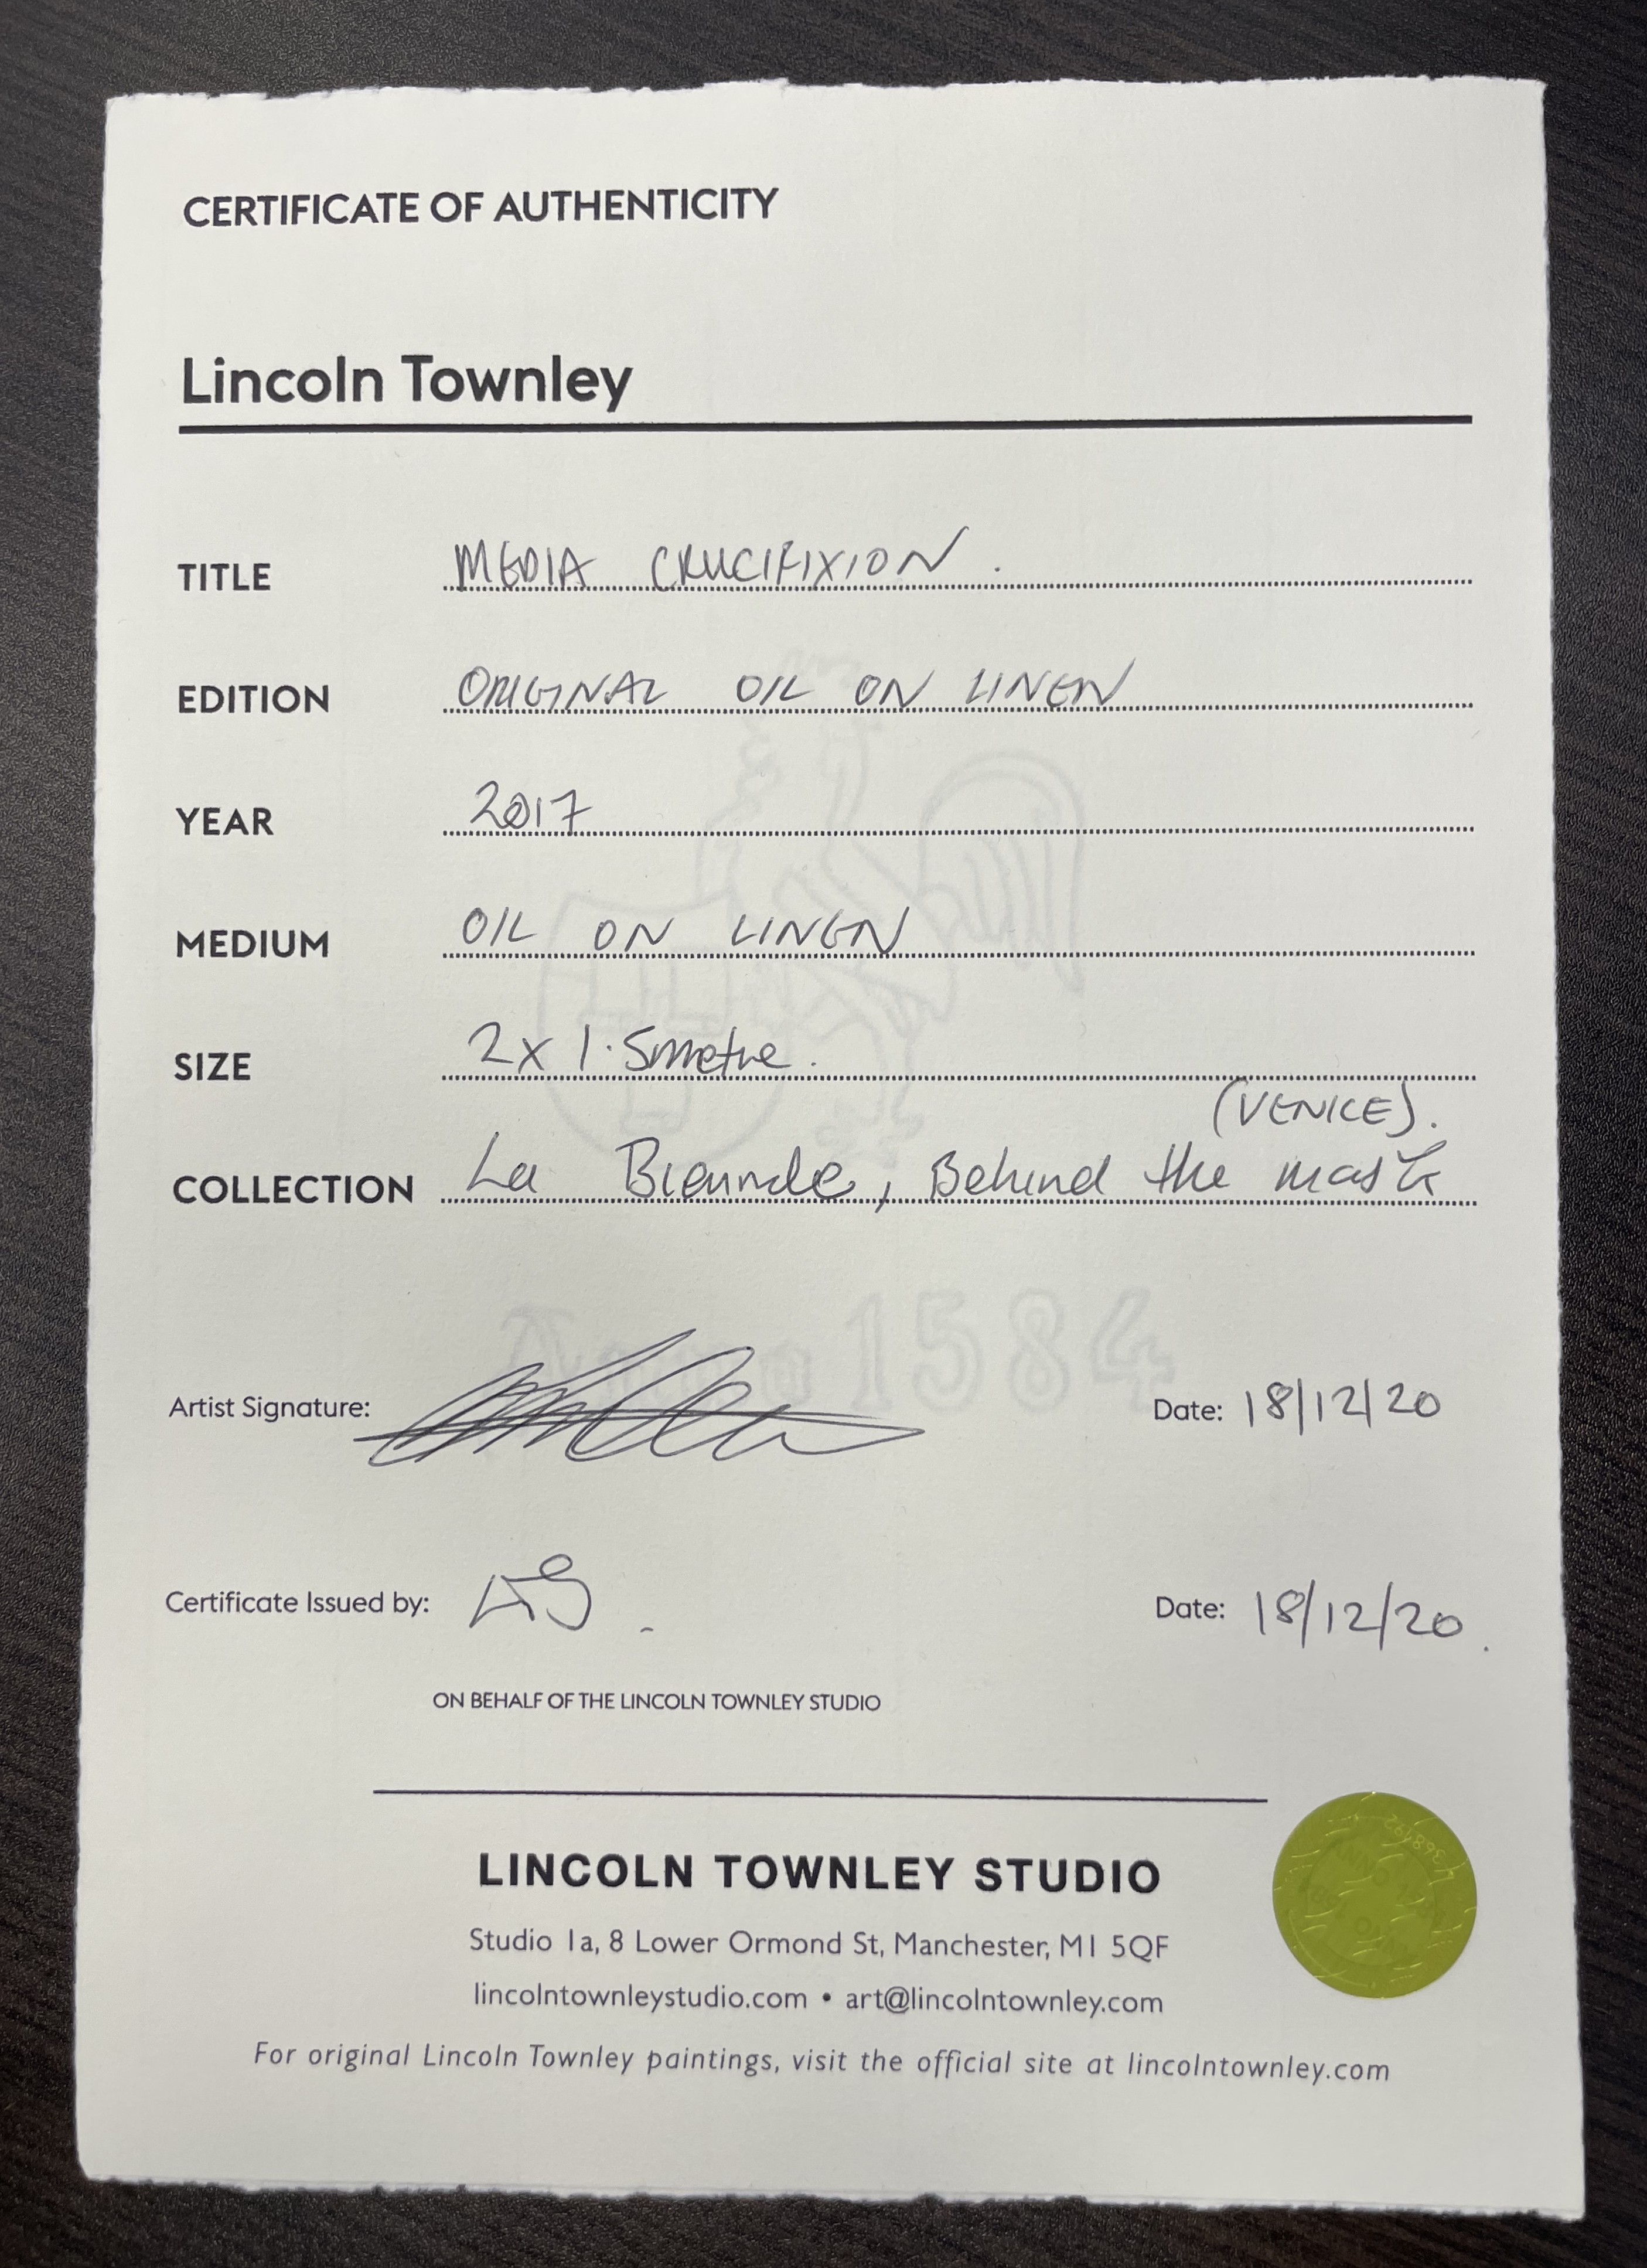 CERTIFICATE OF AUTHENTICITY
Lincoln Townley
TITLE MEDIA CRUCIFIXION .
EDITION ORIGINAL OIL ON LINEN
YEAR 2017
MEDIUM OIL ON LINEN
SIZE 2x 1.5metre.
(VENICE).
COLLECTION La Biennale, Behind the mask
Anno 1584
Artist Signature: Date: 18/12/20
Certificate Issued by: Date: 18/12/20.
ON BEHALF OF THE LINCOLN TOWNLEY STUDIO
LINCOLN TOWNLEY STUDIO
Studio 1a, 8 Lower Ormond St, Manchester, M1 5QF
lincolntownleystudio.com • art@lincolntownley.com
For original Lincoln Townley paintings, visit the official site at lincolntownley.com